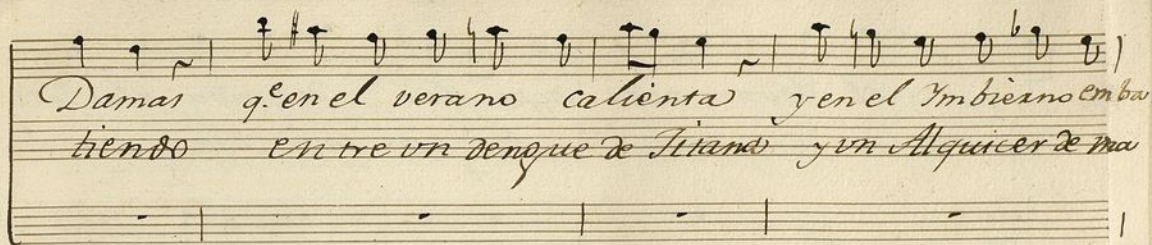 Damas q.e en el verano calienta y en el Ymbierno emba
tiendo entre vn dengue de Titana y vn Alquicer de ma